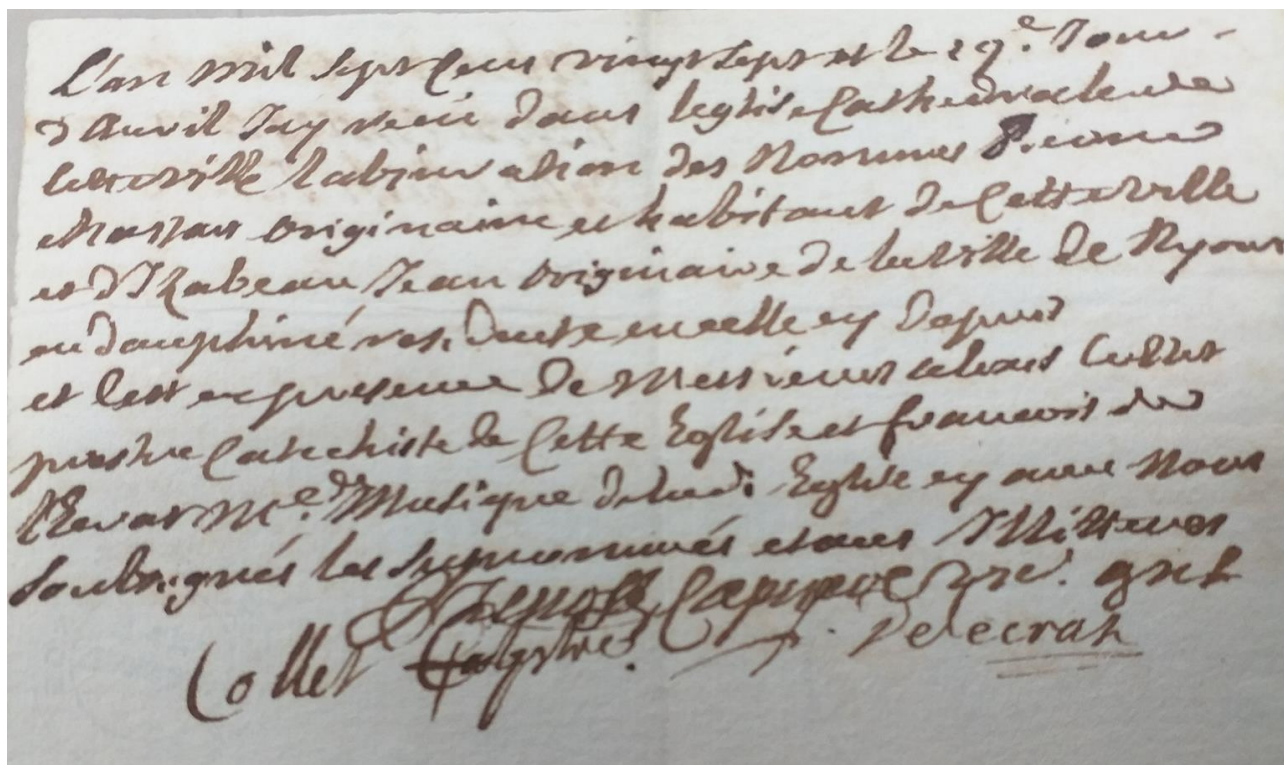 L'an mil sept Cens vingt sept et le 29e. Jour
d'Avril Jay recu dans leglise Cathedrale de
cette Ville labjuration des Nommes Pierre
originaire et habitant de Cette Ville
et d'Izabeau Jean originaire de la Ville de Nyons
en dauphiné residante en celle cy depuis
et cest en presence de Messieurs Collet
prestre Catechiste de Cette Eglise et francois de
Me. de Musique de lad. Eglise cy avec Nous
soubsignés les susnommés et aus Illitteres
Capiscol
Collet prtre. De ecrat